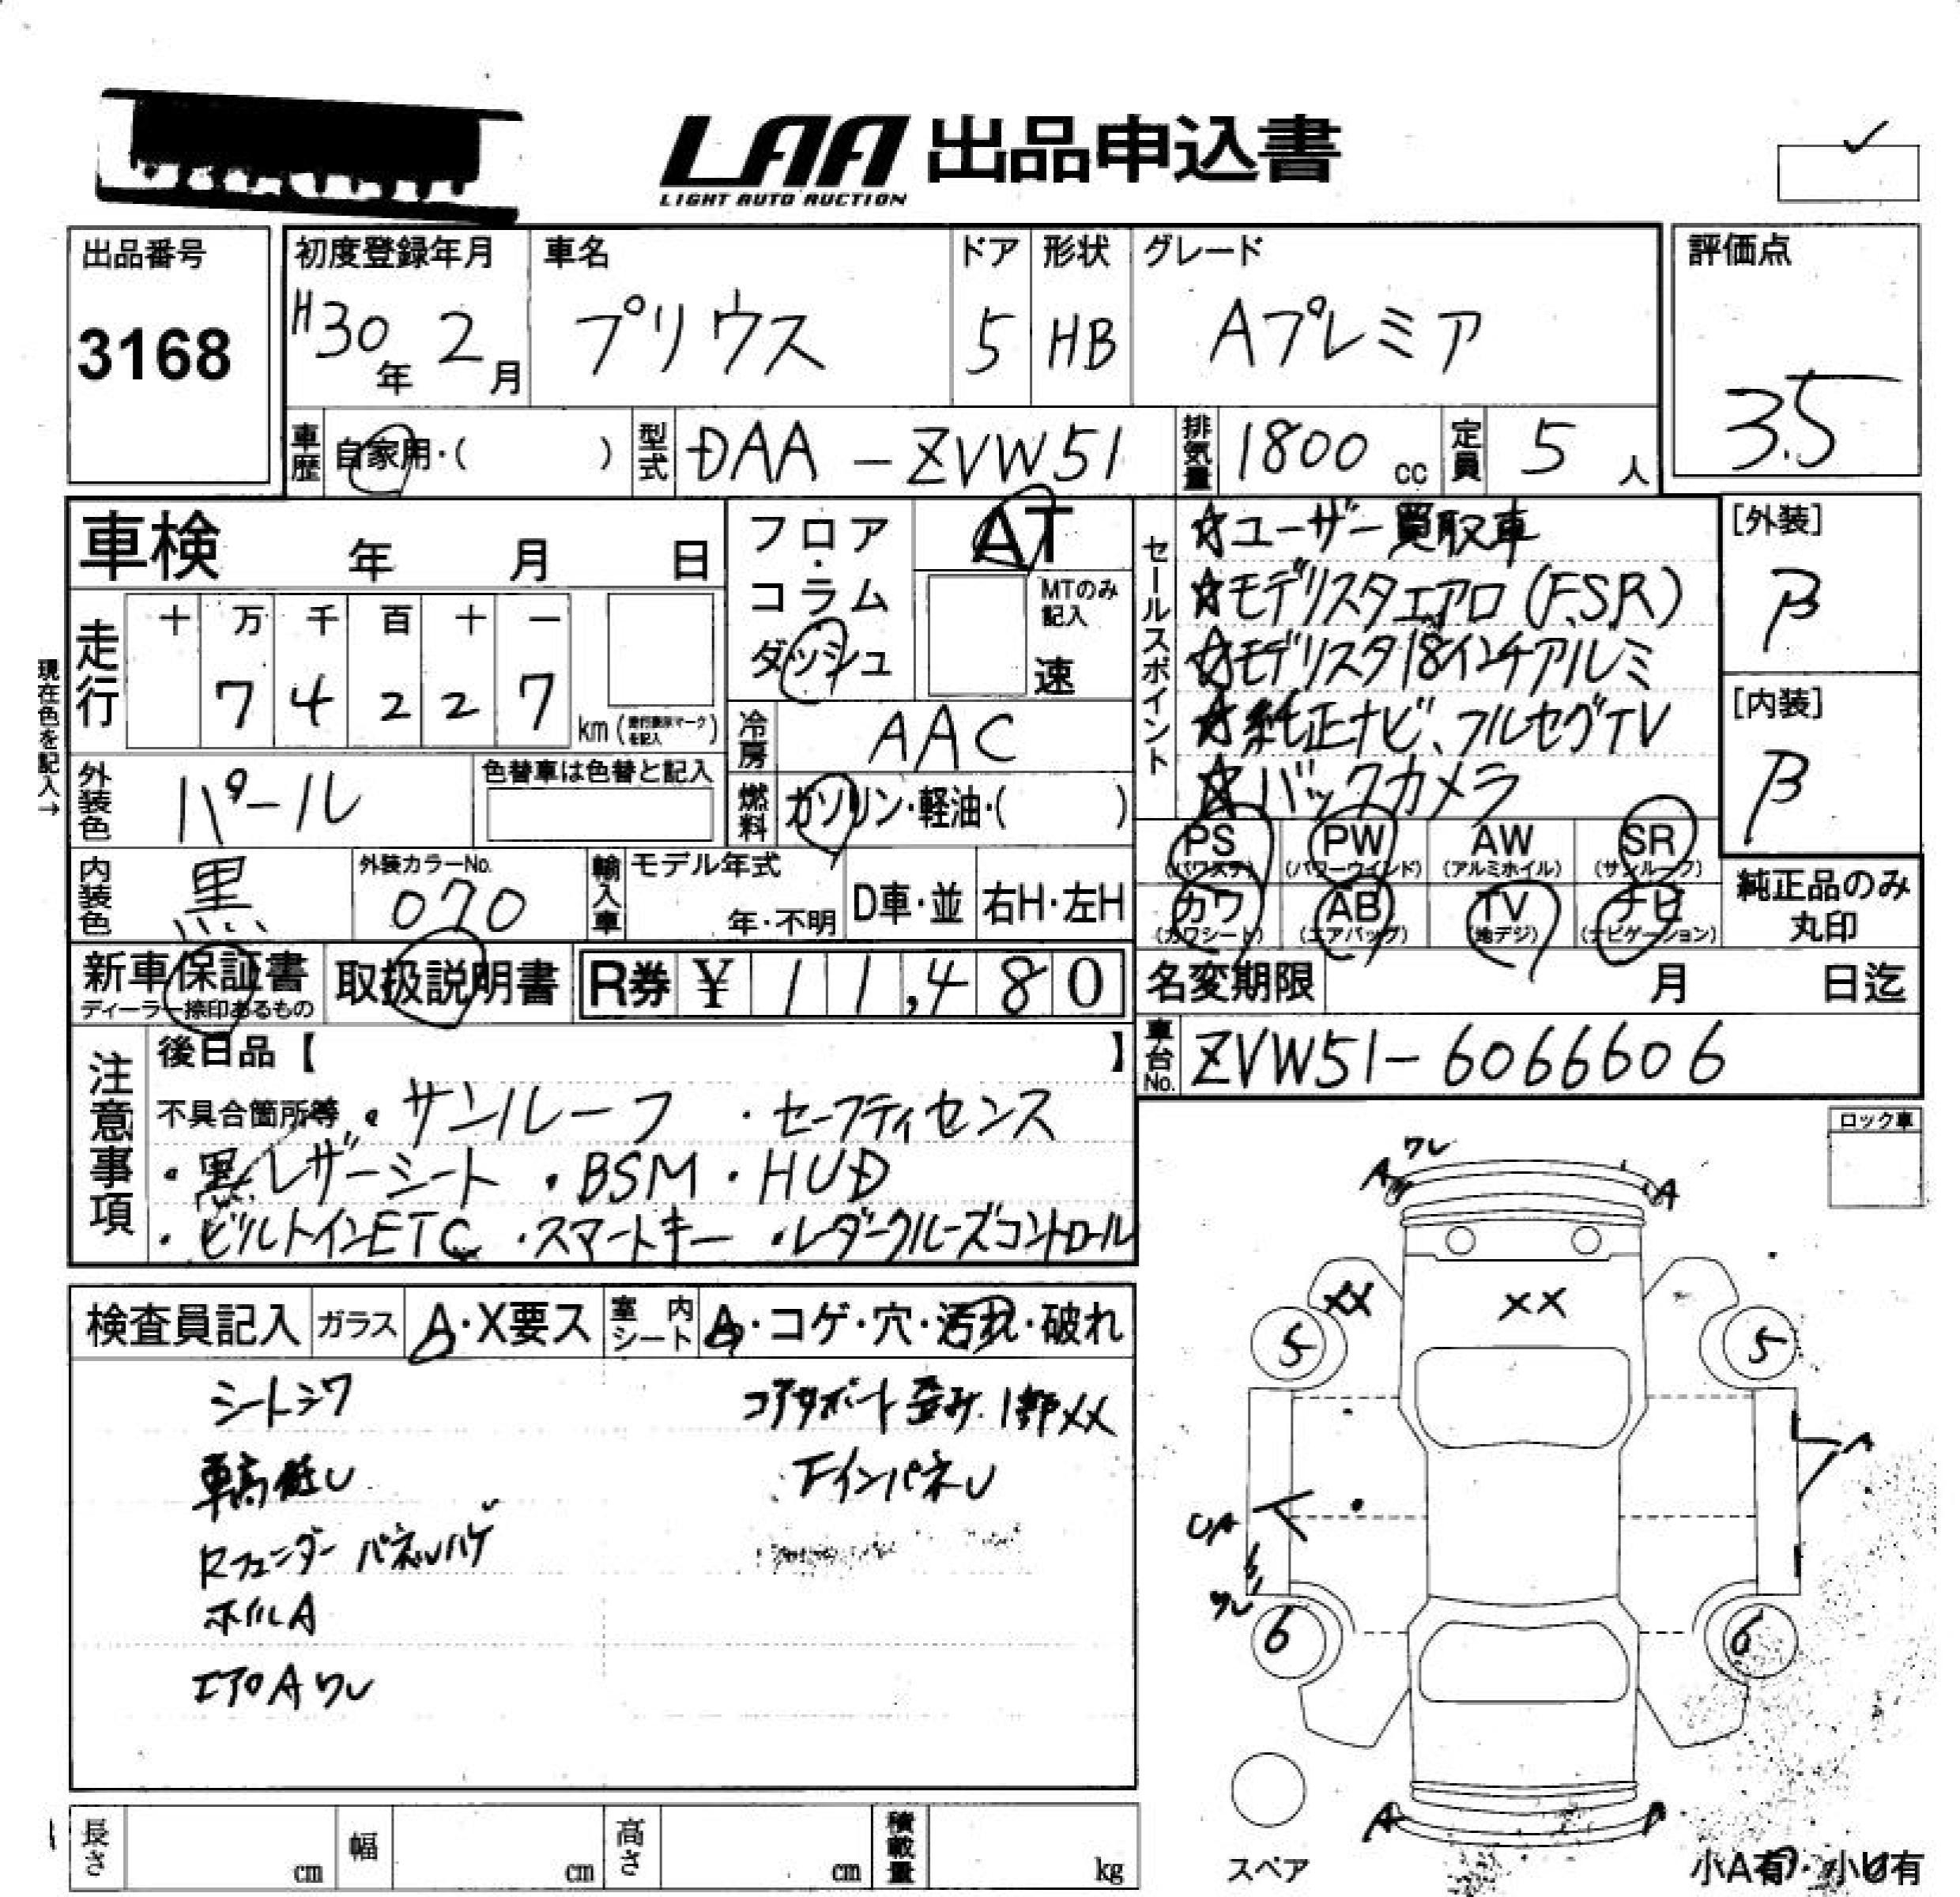 LAA 出品申込書
LIGHT AUTO AUCTION
出品番号
3168
初度登録年月
H30年 2月
車名
プリウス
ドア
5
形状
HB
グレード
Aプレミア
評価点
3.5
車歴 自家用・( )
型式 DAA-ZVW51
排気量 1800 cc
定員 5 人
車検 年 月 日
フロア・コラム ダッシュ
AT
MTのみ記入
速
セールスポイント
☆ユーザー買取車
☆モデリスタエアロ(F.S.R)
☆モデリスタ18インチアルミ
☆純正ナビ、フルセグTV
☆バックカメラ
[外装]
β
[内装]
β
現在色を記入→
走行
十 万 千 百 十 一
7 4 2 2 7
km
冷房 AAC
外装色 パール
色替車は色替と記入
燃料 ガソリン・軽油・( )
PS (パワステ)
PW (パワーウインド)
AW (アルミホイル)
SR (サンルーフ)
カワ (カワシート)
AB (エアバッグ)
TV (地デジ)
ナビ (ナビゲーション)
純正品のみ丸印
内装色 黒
外装カラーNo. 070
輸入車 モデル年式 年・不明
D車・並
右H・左H
新車保証書
ディーラー捺印あるもの
取扱説明書
R券 ¥ 11,480
名変期限 月 日迄
車台No. ZVW51-6066606
注意事項
後日品【 】
不具合箇所等 ・サンルーフ ・セーフティセンス
・黒レザーシート ・BSM ・HUD
・ビルトインETC ・スマートキー ・レダークルーズコントロール
検査員記入
ガラス A・X要ス
室内シート A・コゲ・穴・汚れ・破れ
シートシワ
車高低し
Rフェンダー パネルハゲ
ホイルA
エアロAワレ
コアサポート歪み.1部XX
Fインパネし
ロック車
ワレ
A
A
XX
XX
5
5
A
UA
ワレ
6
6
A
スペア
小A有・小U有
長さ cm
幅 cm
高さ cm
積載量 kg